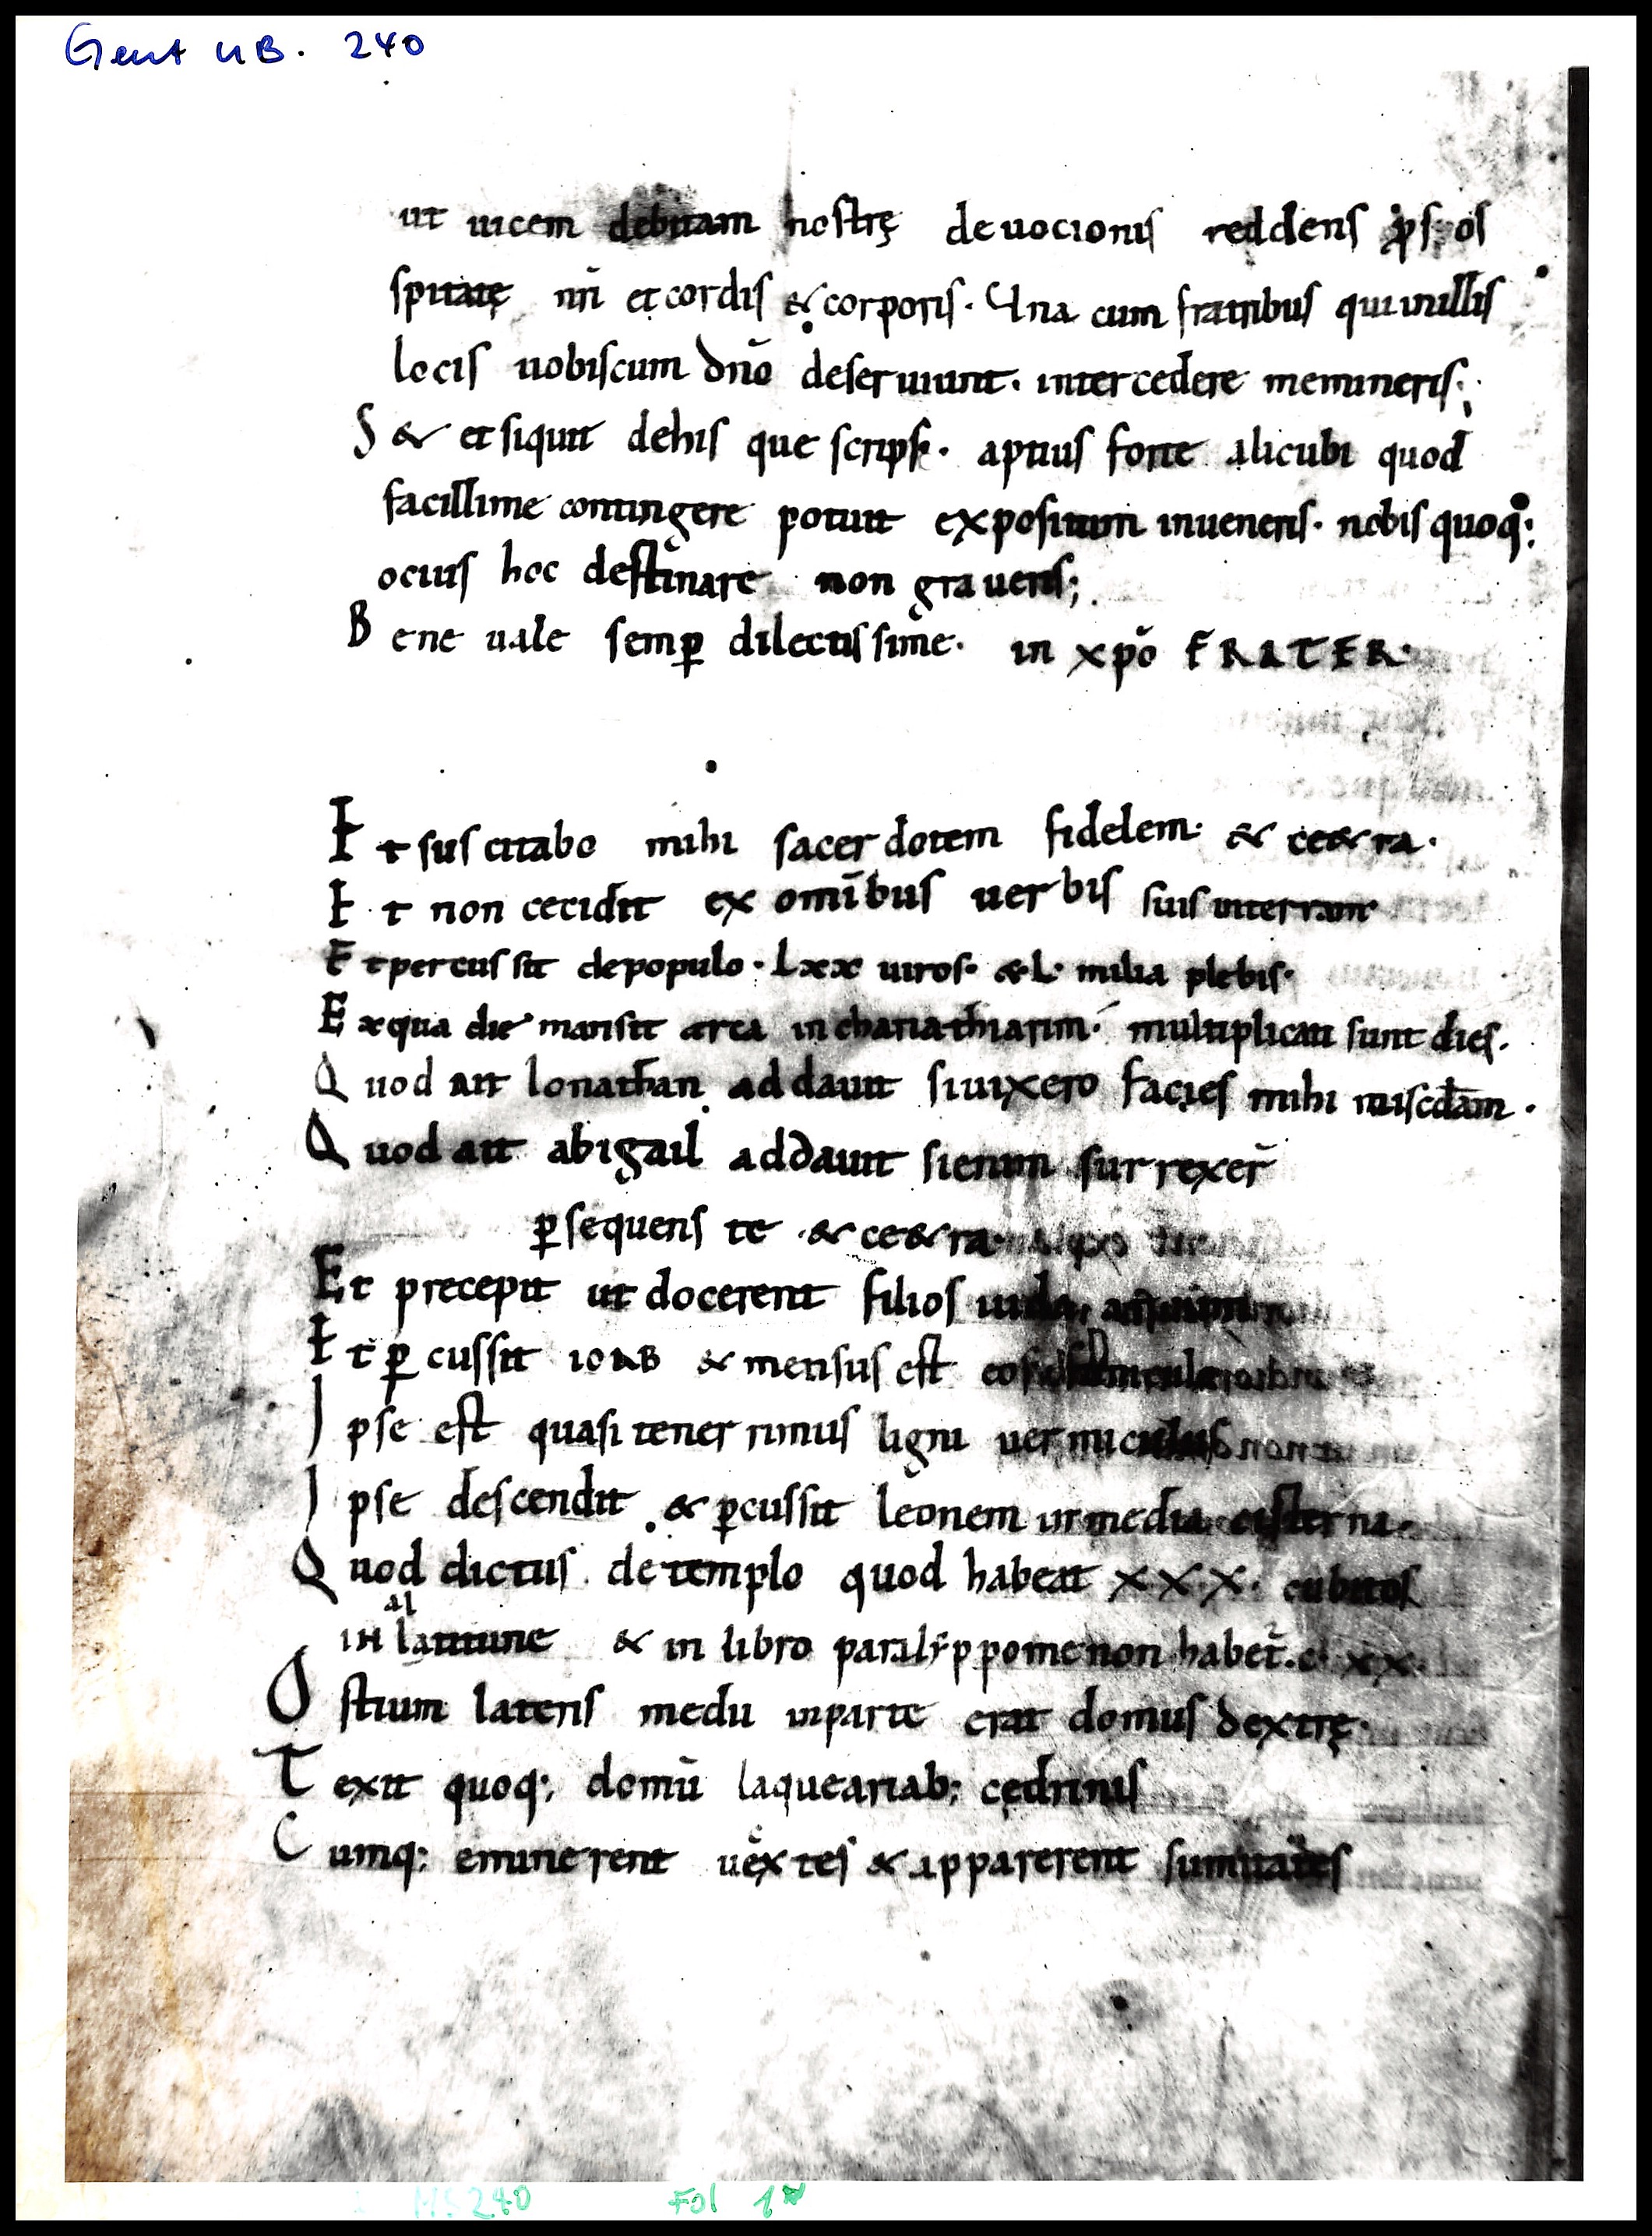 Gent UB. 240
ut uicem debitam nostrę deuocionis reddens
spitatę nr̄i et cordis & corporis. Una cum fratribus qui in illis
locis uobiscum dn̄o deseruiunt. intercedere memineris;
S & et siquit dehis que scripsi. aptius forte alicubi quod
facillime contingere potuit expositum inueneris. nobis quoq;
ocius hoc destinare non graueris;
B ene uale semꝑ dilectissime. in xp̄o FRATER.
E t suscitabo mihi sacerdotem fidelem. & ce&ra.
E t non cecidit ex omībus uerbis suis interram
E t percussit depopulo. Lxx uiros. & L. milia plebis.
E xqua die mansit arca in chariathiarim. multiplicati sunt dies.
Q uod ait Ionathan addauit siuixero facies mihi miscd̄am.
Q uod ait abigail addauit sienim surrexer̄
ꝑsequens te & ce&ra.
Et precepit ut docerent filios iuda
E t ꝑcussit IOAB & mensus est eos
I pse est quasi tenerrimus ligni uermiculus
I pse descendit & ꝑcussit leonem inmedia cisterna.
Q uod dictus detemplo quod habeat x.x.x. cubitos
al
in latitune & in libro paralyppomenon habet̄. c. xx.
O stium lateris medii inparte erat domus dextrę.
T exit quoq; domū laqueariab; cędrinis
C umq; eminerent uectes & apparerent sumitates
MS240 Fol 1v